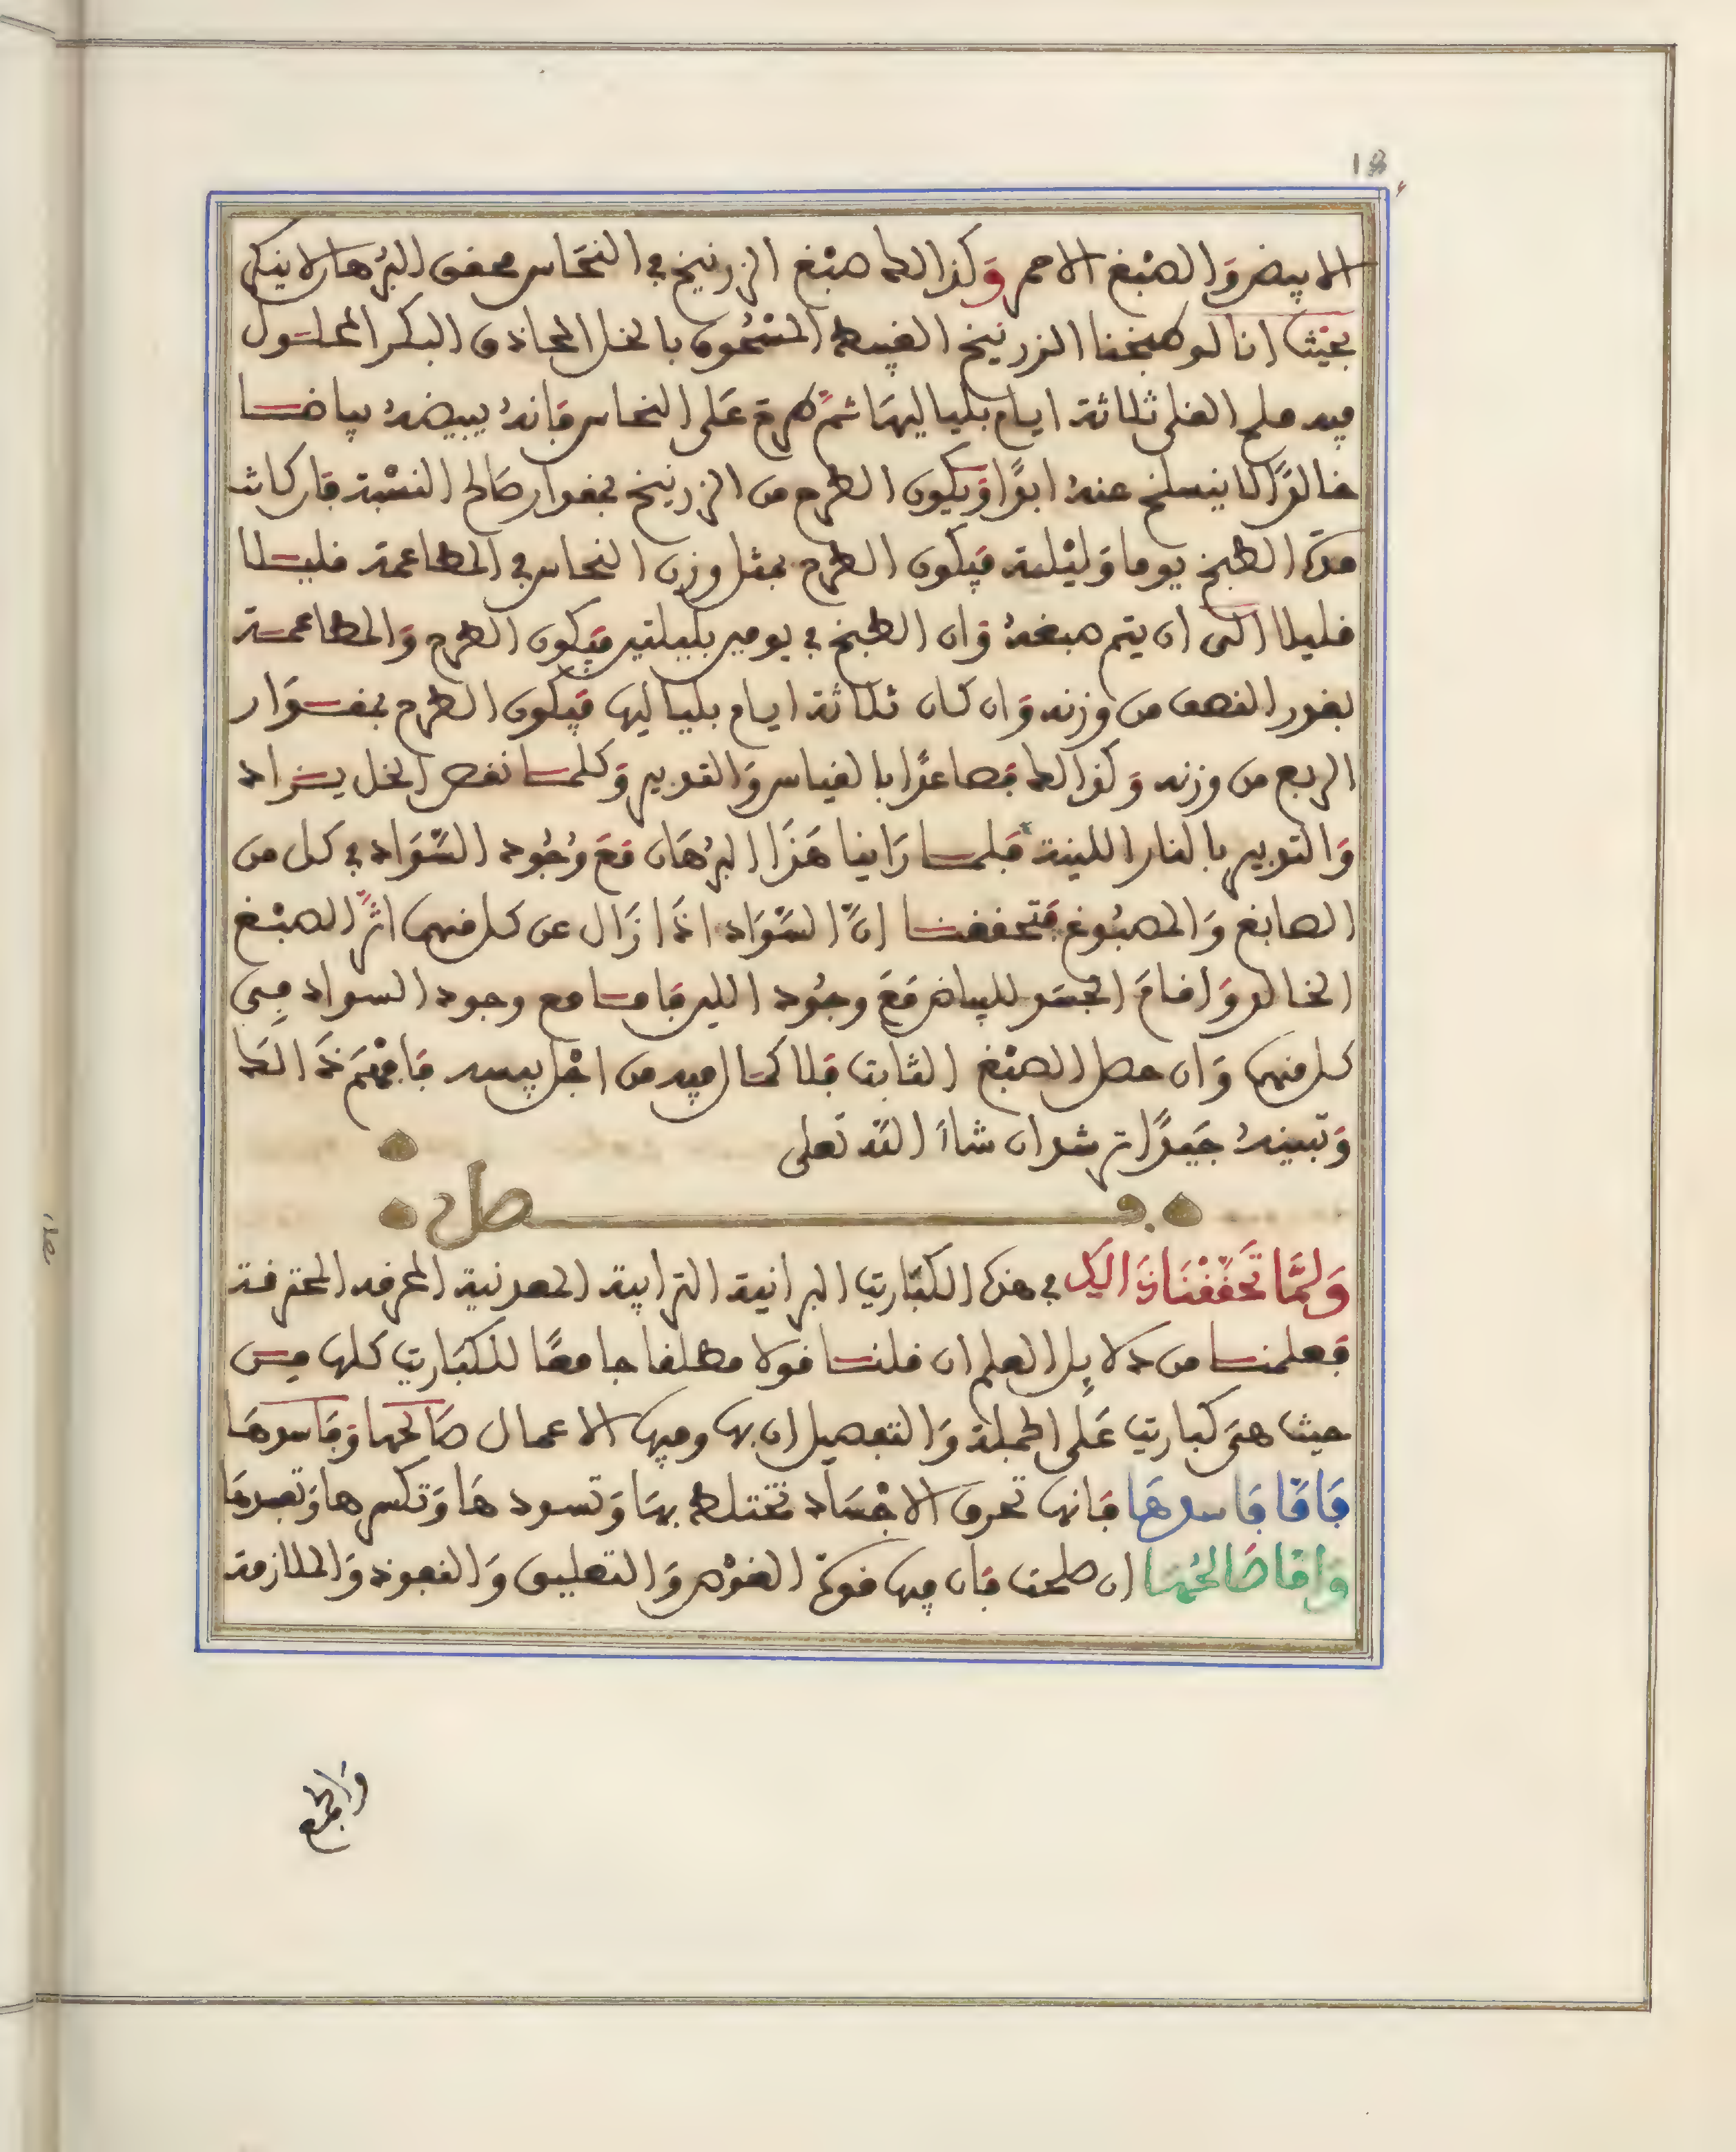 18
الابيض والصبغ الاحمر وكذالك صبغ الزرنيخ في النحاس محقق البرهان لا ينكر
بحيث انا لو طبخنا الزرنيخ الغبيط المسحوق بالخل الحاذق البكر المحلول
فيه ملح القلي ثلاثة ايام بلياليها ثم طرح على النحاس فانه يبيضه بياضا
خالدا لا ينسلخ عنه ابدا ويكون الطرح من الزرنيخ بمقدار صالح النسبة فان كانت
مدة الطبخ يوما وليلة فيكون الطرح بمثل وزن النحاس في المطاعمة قليلا
قليلا الى ان يتم صبغه وان الطبخ في يومين بليلتين فيكون الطرح والمطاعمة
بقدر النصف من وزنه وان كان ثلاثة ايام بلياليها فيكون الطرح بمقدار
الربع من وزنه وكذالك فصاعدا بالقياس والتدبير وكلما نقص الخل يزاد
والتدبير بالنار اللينة فلما راينا هذا البرهان مع وجود السواد في كل من
الصابغ والمصبوغ فتحققنا ان السواد اذا زال عن كل منهما اثر الصبغ
الخالد واقام الجسد للبياض مع وجود اللين فاما مع وجود السواد في
كل منهما وان حصل الصبغ الثابت فلا كمال فيه من اجل يبسه فافهم ذالك
وتبينه جيدا ترشد ان شاء الله تعلى
فصل
ولما تحققنا ذالك في هذه الكباريت البرانية الترابية المعدنية المحرقه المحترقة
فعلمنا من دلايل العلم ان قلنا قولا مطلقا جامعا للكباريت كلها من
حيث هي كباريت على الجملة والتفصيل ان بها وفيها الاعمال صالحها وفاسدها
فاما فاسدها فانها تحرق الاجساد تختلط بها وتسودها وتكسرها وتفسدها
واما صالحها ان صلحت فان فيها قوة الغوص والتعليق والنفوذ والملازمة
والجمع